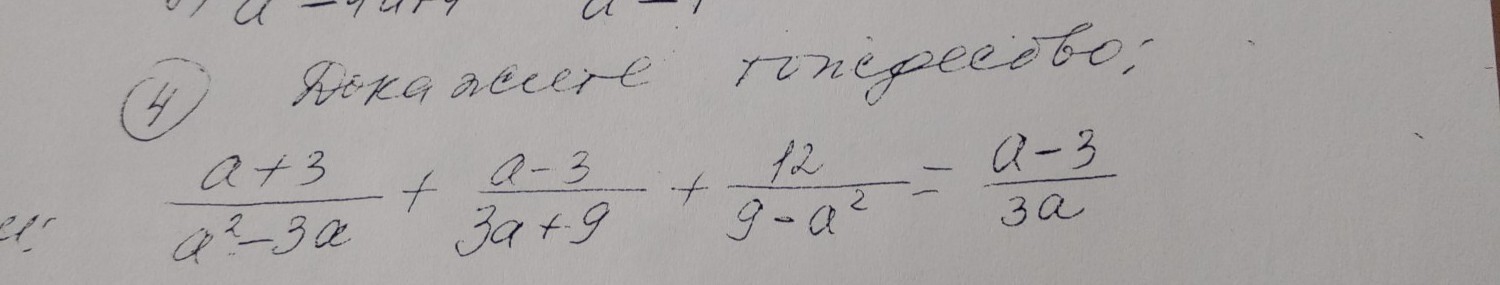 ④ Докажите тождество:
a+3/a²-3a + a-3/3a+9 + 12/9-a² = a-3/3a